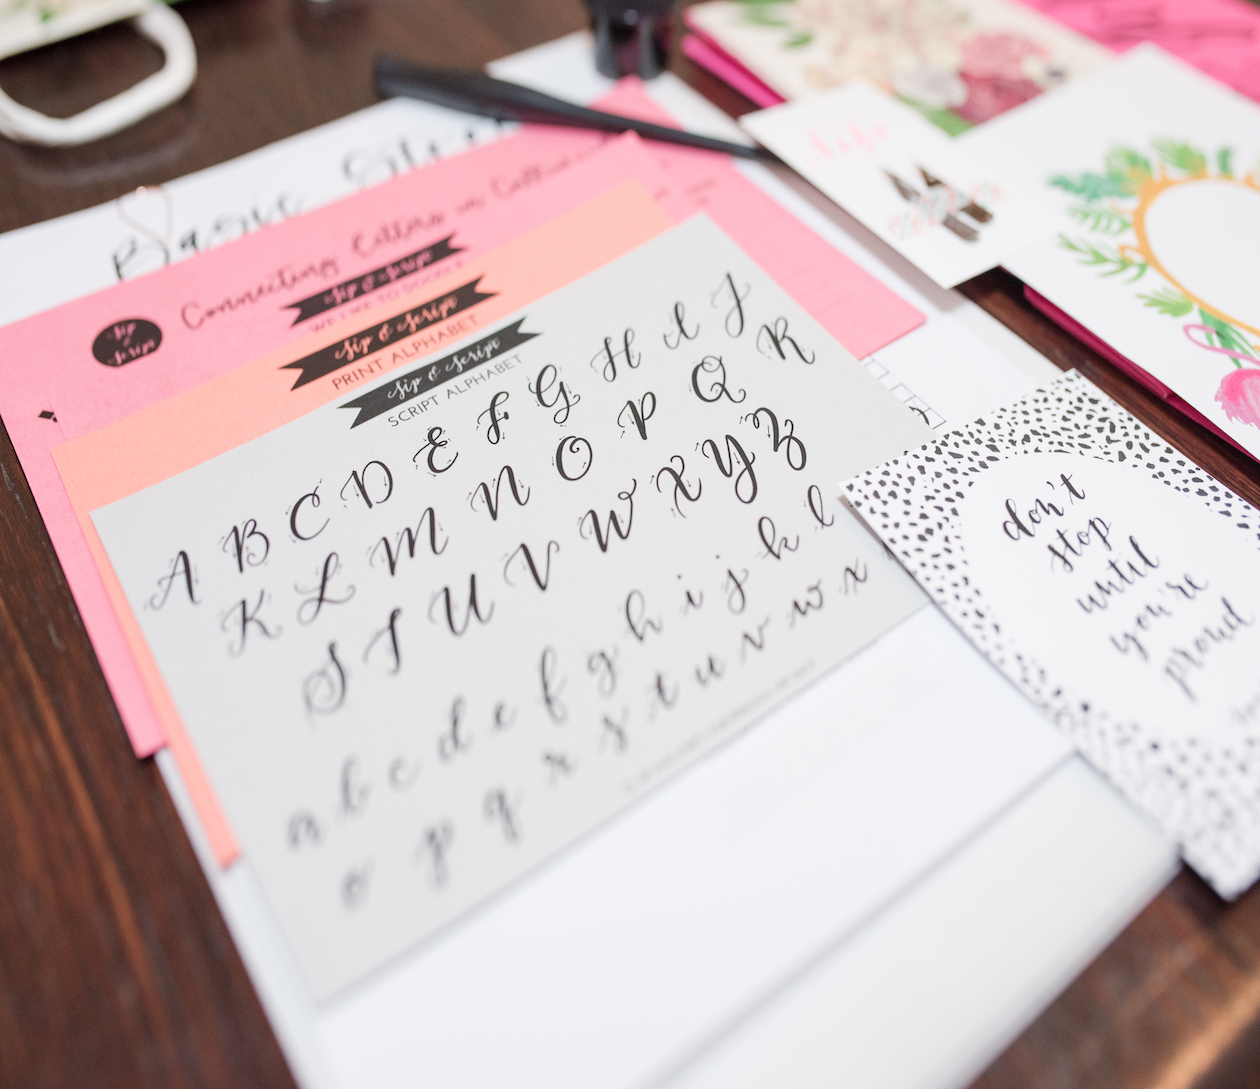 Basic
Connecting Letters in
Sip
&
Script
Sip & Script
WE LIKE TO DOODLE
Sip & Script
PRINT ALPHABET
Sip & Script
SCRIPT ALPHABET
A B C D E F G H I J
K L M N O P Q R
S T U V W X Y Z
a b c d e f g h i j k l
o p q r s t u v w x
don't
stop
until
you're
proud